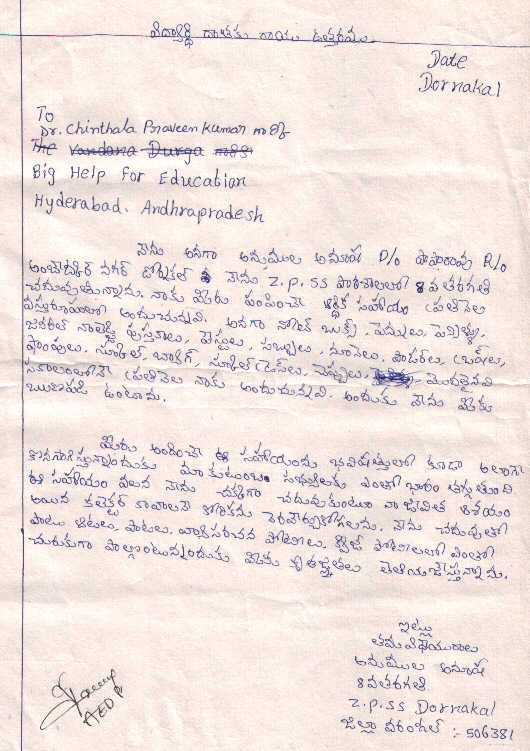 విద్యార్థి దాతకు రాయు ఉత్తరము.
Date
Dornakal
To
Dr. Chinthala Praveen Kumar గారికి
The Vandana Durga గారికి
Big Help For Education
Hyderabad. Andhrapradesh
నేను అనగా అనుముల అనూష D/o R/o
అంబేద్కర్ నగర్ డోర్నకల్ నేను Z.P.SS పాఠశాలలో 8వ తరగతి
చదువుతున్నాను. నాకు మీరు పంపించే ఆర్థిక సహాయం ప్రతినెల
వస్తురూపంలో అందుచున్నవి. అనగా నోట్ బుక్స్, పెన్నులు, పెన్సిళ్ళు,
జనరల్ నాలెడ్జి పుస్తకాలు, పేస్టులు, సబ్బులు, నూనెలు, పౌడర్లు, బ్రష్‌లు,
షాంపులు, స్కూల్ బ్యాగ్, స్కూల్ డ్రెస్‌లు, చెప్పులు, మొదలైనవి
సకాలంలోనే ప్రతినెల నాకు అందుచున్నవి. అందుకు నేను మీకు
ఋణపడి ఉంటాను.
మీరు అందించే ఈ సహాయంను భవిష్యత్తులో కూడా అలాగే
కొనసాగిస్తున్నందుకు మా కుటుంబ సభ్యులకు ఎంతో భారం తగ్గుతుంది
ఈ సహాయం వలన నేను చక్కగా చదువుకుంటూ నా జీవిత ఆశయం
అయిన కలెక్టర్ కావాలనే కోరికను నెరవేర్చుకోగలను. నేను చదువుతో
పాటు ఆటలు, పాటలు, వ్యాసరచన పోటీలు, క్విజ్ పోటీలలో ఎంతో
చురుకుగా పాల్గొంటున్నందుకు మీకు కృతజ్ఞతలు తెలియజేస్తున్నాను.
ఇట్లు
తమ విధేయురాలు
అనుముల అనూష
8వ తరగతి
Z.P.SS Dornakal
జిల్లా వరంగల్ :- 506381